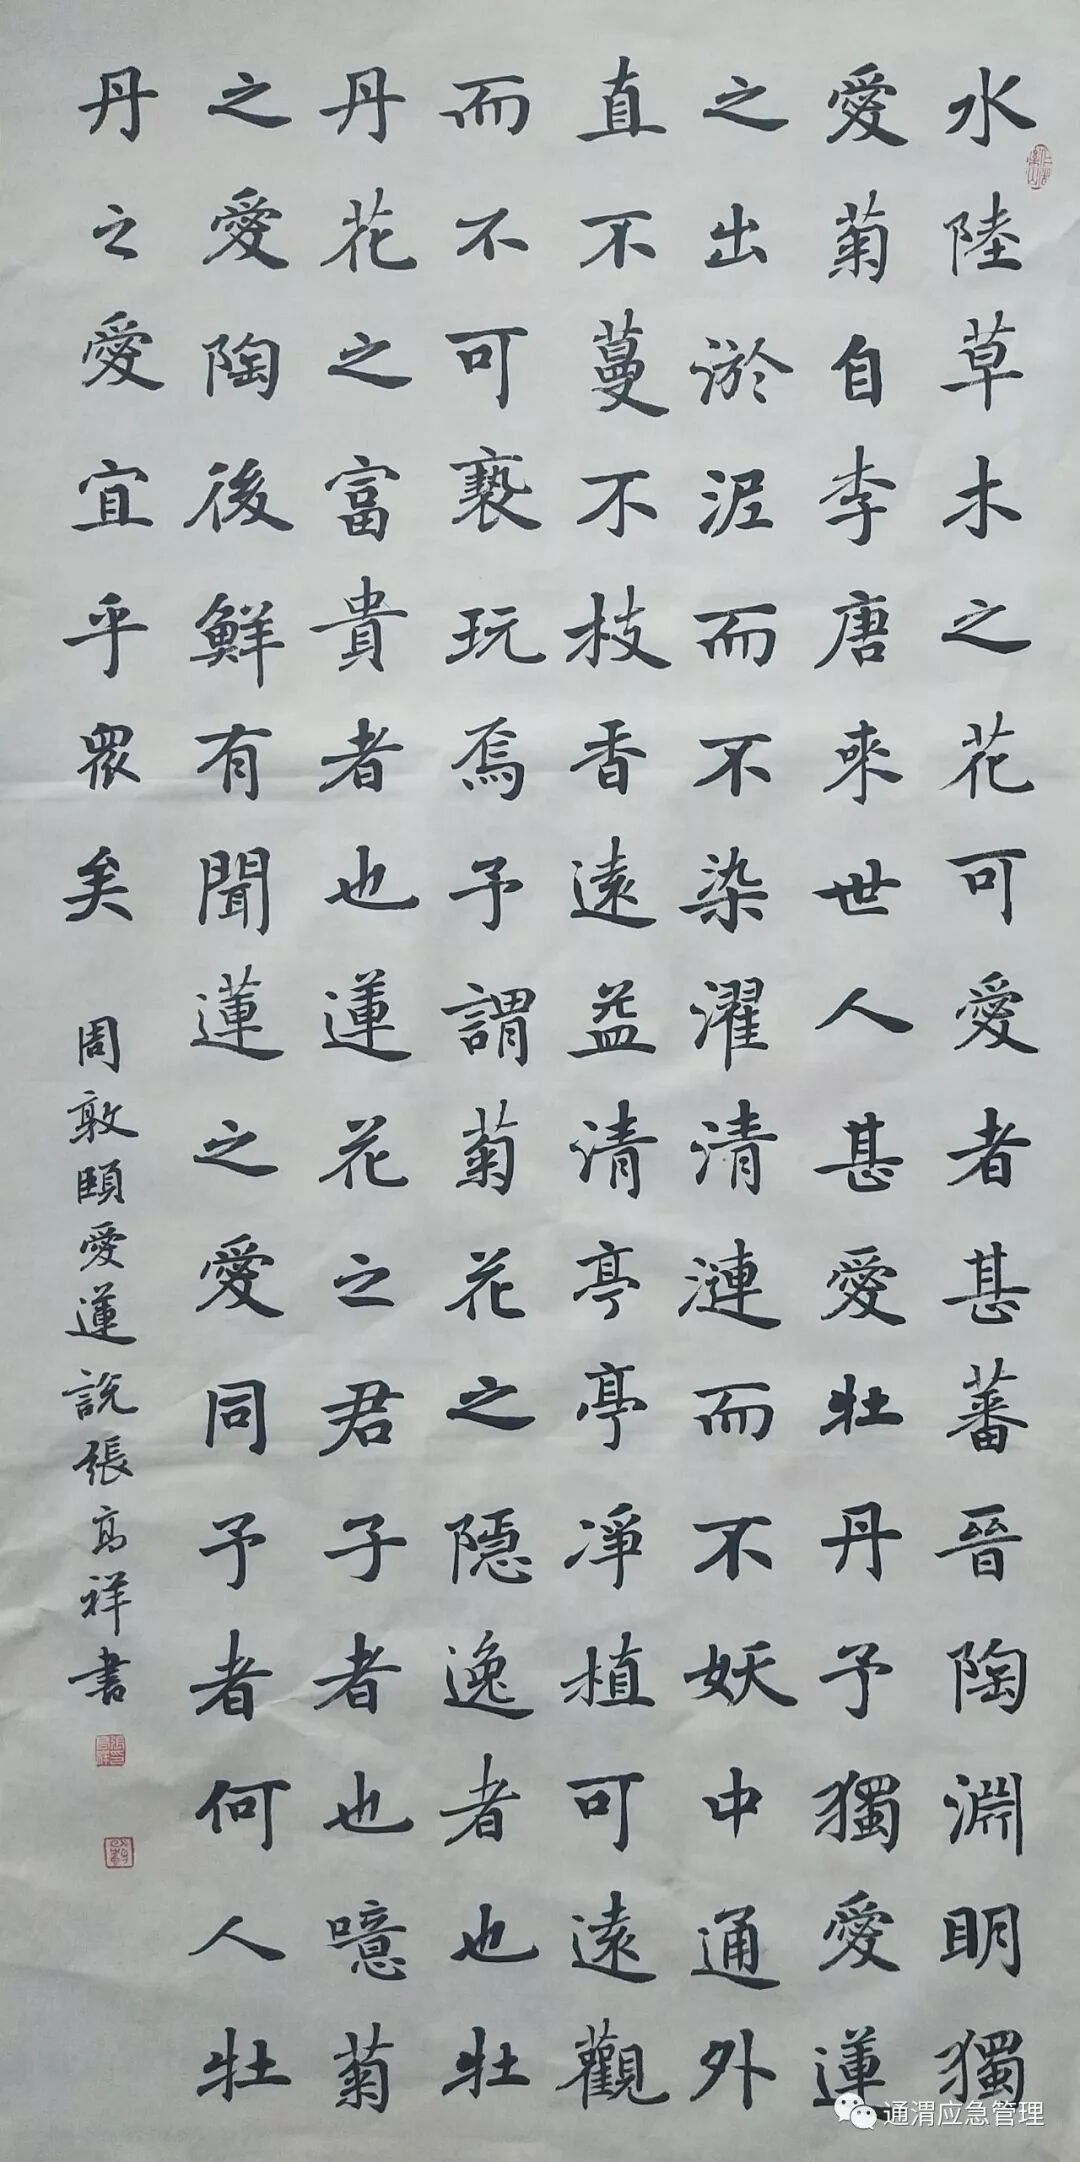 水陸草木之花可愛者甚蕃晉陶淵明獨
愛菊自李唐來世人甚愛牡丹予獨愛蓮
之出淤泥而不染濯清漣而不妖中通外
直不蔓不枝香遠益清亭亭凈植可遠觀
而不可褻玩焉予謂菊花之隱逸者也牡
丹花之富貴者也蓮花之君子者也噫菊
之愛陶後鮮有聞蓮之愛同予者何人牡
丹之愛宜乎眾矣
周敦頤愛蓮說張高祥書
通渭应急管理